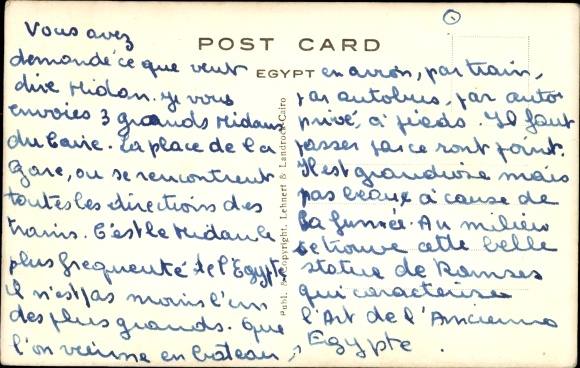 Vous avez
demandé ce que veut
dire Midan. Je vous
envoies 3 grands Midans
du Caire. La place de la
Gare, ou se rencontrent
toutes les directions des
trains. C'est le Midan le
plus frequenté de l'Egypte
il n'est pas moins l'un
des plus grands. Que
l'on vienne en bateau,
POST CARD
EGYPT
en avion, par train,
par autobus, par auto
privé, à pieds. Il faut
passer par ce rond point.
Il est grandiose mais
pas beaux à cause de
la fumée. Au milieu
se trouve cette belle
statue de Ramses
qui caracterise
l'Art de l'Ancienne
Egypte.
Publ. & Copyright. Lehnert & Landrock. Cairo